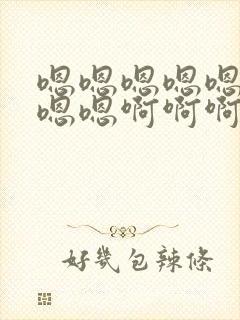 嗯嗯嗯嗯嗯
嗯嗯啊啊啊
好幾包辣條